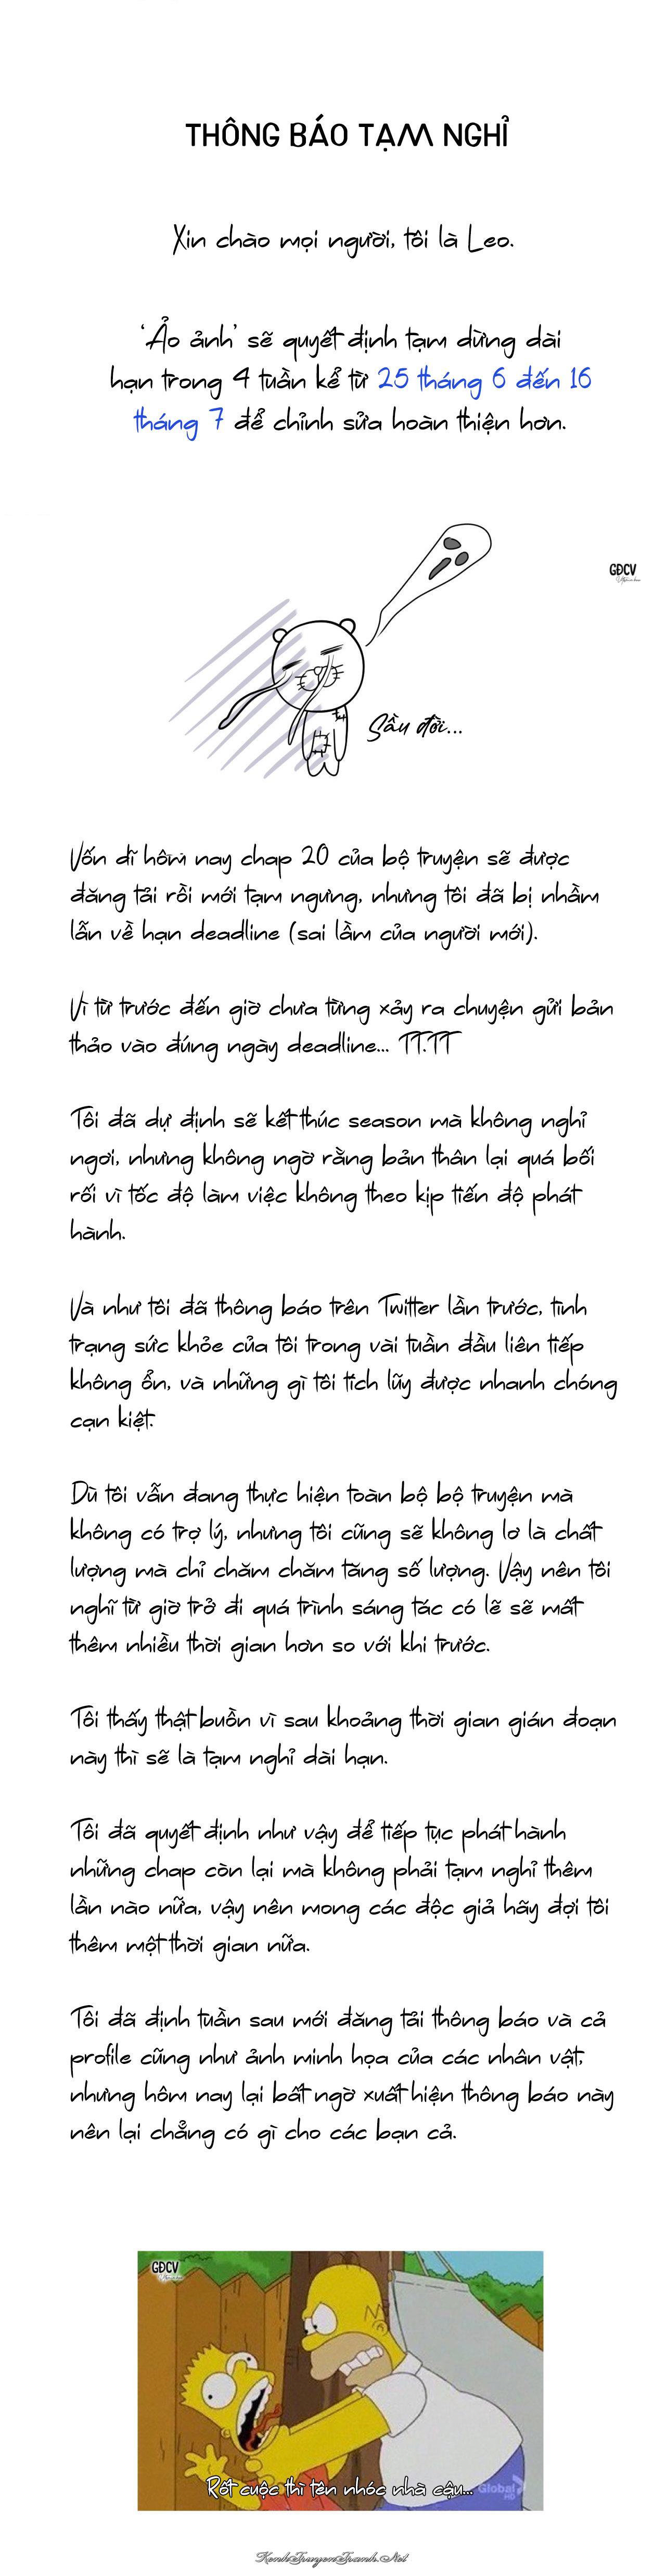 THÔNG BÁO TẠM NGHỈ
Xin chào mọi người, tôi là Leo.
‘Ảo ảnh’ sẽ quyết định tạm dừng dài
hạn trong 4 tuần kể từ 25 tháng 6 đến 16
tháng 7 để chỉnh sửa hoàn thiện hơn.
GĐCV
Sầu đời...
Vốn dĩ hôm nay chap 20 của bộ truyện sẽ được
đăng tải rồi mới tạm ngưng, nhưng tôi đã bị nhầm
lẫn về hạn deadline (sai lầm của người mới).
Vì từ trước đến giờ chưa từng xảy ra chuyện gửi bản
thảo vào đúng ngày deadline... TT.TT
Tôi đã dự định sẽ kết thúc season mà không nghỉ
ngơi, nhưng không ngờ rằng bản thân lại quá bối
rối vì tốc độ làm việc không theo kịp tiến độ phát
hành.
Và như tôi đã thông báo trên Twitter lần trước, tình
trạng sức khỏe của tôi trong vài tuần đầu liên tiếp
không ổn, và những gì tôi tích lũy được nhanh chóng
cạn kiệt.
Dù tôi vẫn đang thực hiện toàn bộ bộ truyện mà
không có trợ lý, nhưng tôi cũng sẽ không lơ là chất
lượng mà chỉ chăm chăm tăng số lượng. Vậy nên tôi
nghĩ từ giờ trở đi quá trình sáng tác có lẽ sẽ mất
thêm nhiều thời gian hơn so với khi trước.
Tôi thấy thật buồn vì sau khoảng thời gian gián đoạn
này thì sẽ là tạm nghỉ dài hạn.
Tôi đã quyết định như vậy để tiếp tục phát hành
những chap còn lại mà không phải tạm nghỉ thêm
lần nào nữa, vậy nên mong các độc giả hãy đợi tôi
thêm một thời gian nữa.
Tôi đã định tuần sau mới đăng tải thông báo và cả
profile cũng như ảnh minh họa của các nhân vật,
nhưng hôm nay lại bất ngờ xuất hiện thông báo này
nên lại chẳng có gì cho các bạn cả.
GĐCV
Rốt cuộc thì tên nhóc nhà cậu...
Global
HD
KenhTruyenTranh.Net